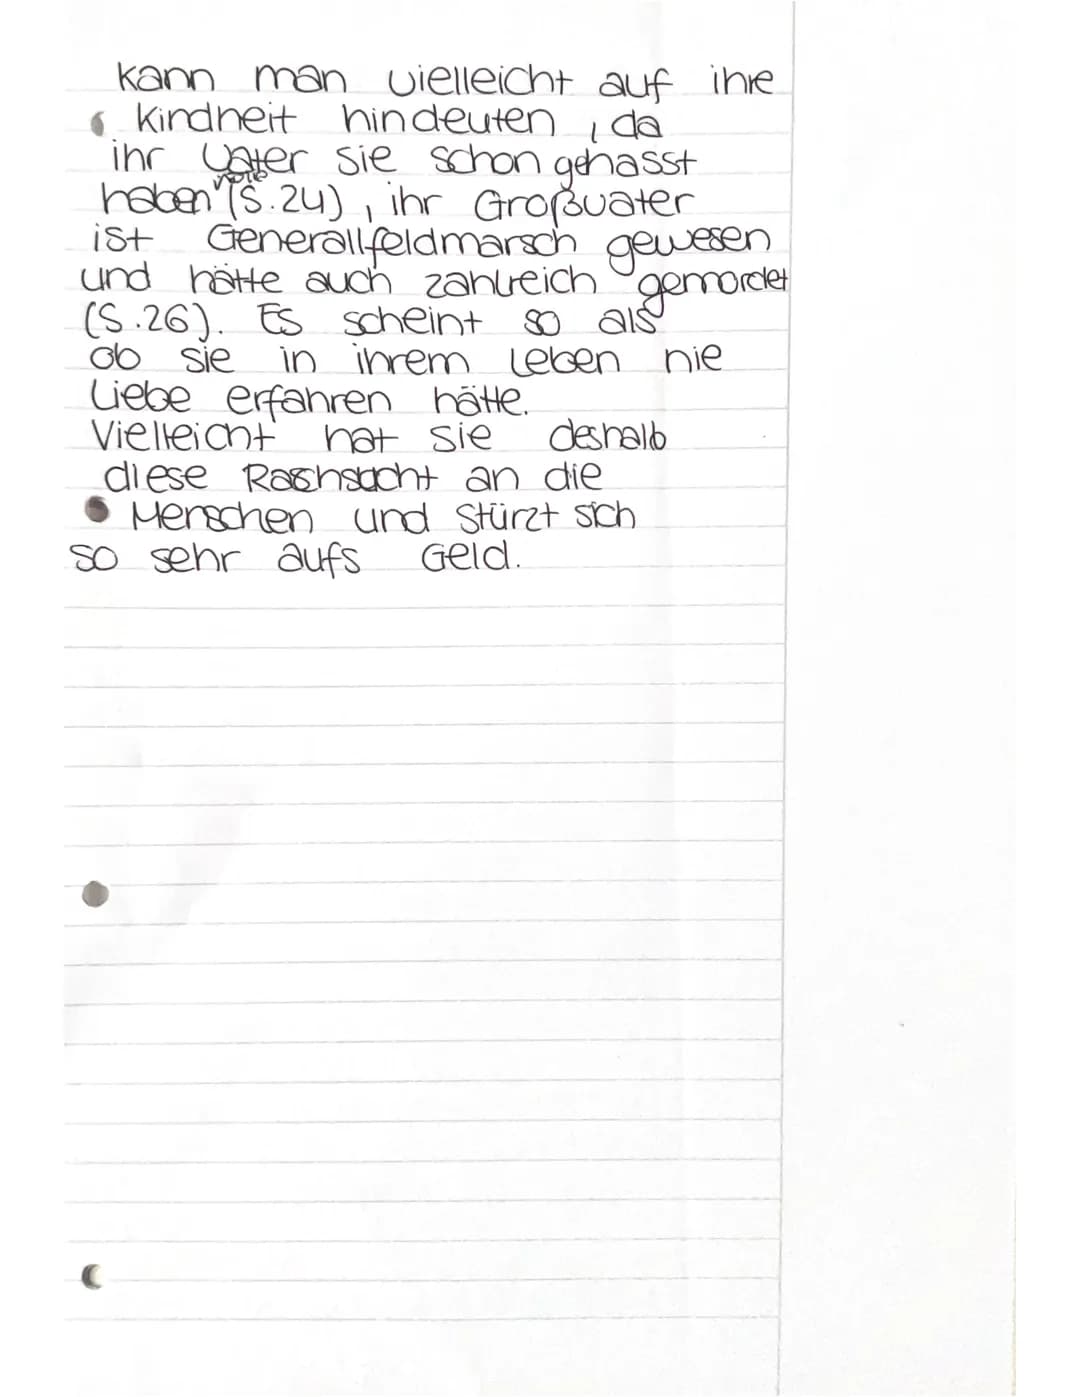 kann man vielleicht auf ihre
Kindheit hindeuten, da
ihr Vater sie schon gehasst
haben würde (S.24), ihr Großvater
ist Generallfeldmarsch gewesen
und hätte auch zahlreich gemordet
(S.26). Es scheint so als
ob sie in ihrem Leben nie
Liebe erfahren hätte.
Vielleicht hat sie deshalb
diese Rachsucht an die
Menschen und stürzt sich
so sehr aufs Geld.